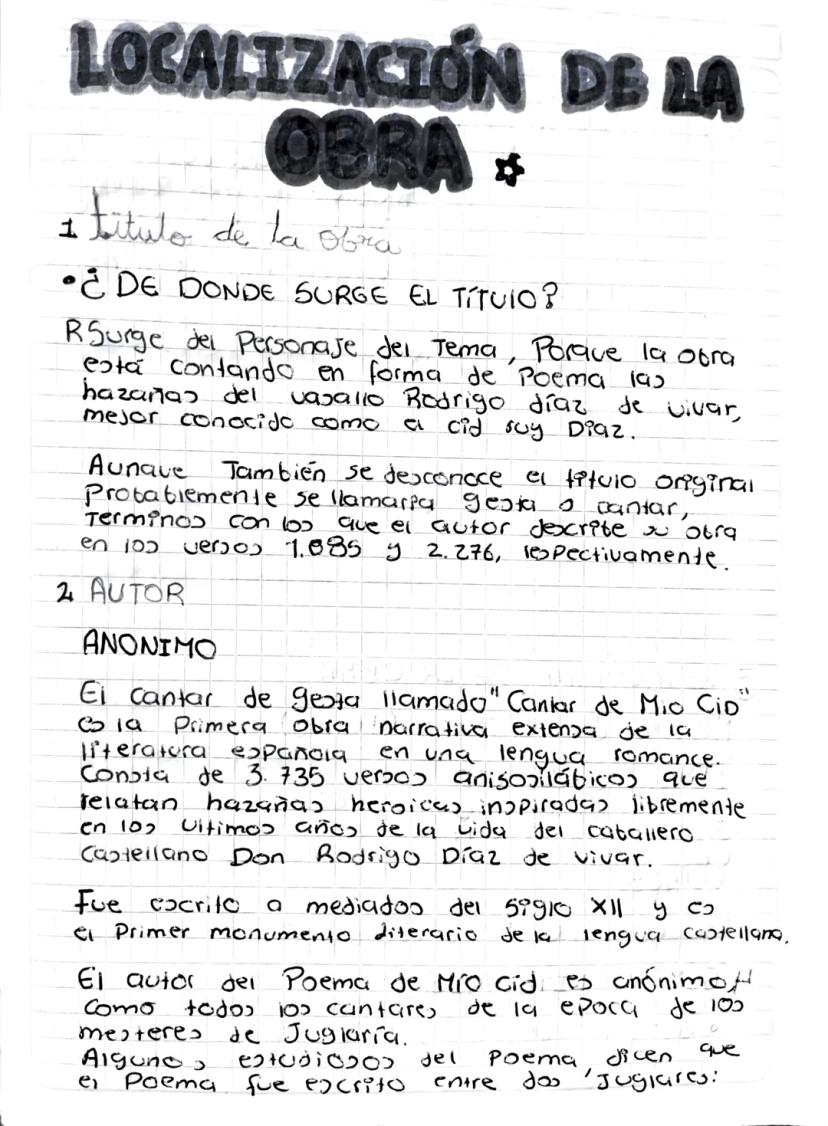 LOCALIZACIÓN DE LA
OBRA
1 título de la obra
• ¿ DE DONDE SURGE EL TÍTUlO?
R Surge del Personaje del Tema, Porque la obra
está contando en forma de Poema las
hazañas del vasallo Rodrigo díaz de vivar,
mejor conocido como el cid ruy Díaz.
Aunque También se desconoce el título original
Probablemente se llamaría gesta o cantar,
Terminos con los que el autor describe su obra
en los versos 1.085 y 2.276, respectivamente.
2 AUTOR
ANONIMO
El cantar de gesta llamado "Cantar de Mio CiD"
es la Primera obra narrativa extensa de la
literatura española en una lengua romance.
Consta de 3.735 versos anisosilábicos que
relatan hazañas heroicas inspiradas libremente
en los ultimos años de la vida del caballero
Castellano Don Rodrigo Díaz de vivar.
Fue escrito a mediados del siglo XII y es
el Primer monumento literario de la lengua castellana.
El autor del Poema de Mío cid es anónimo
Como todos los cantares de la epoca de los
mesteres de Juglaría.
Algunos estudiosos del Poema, dicen que
el Poema fue escrito entre dos Juglares: